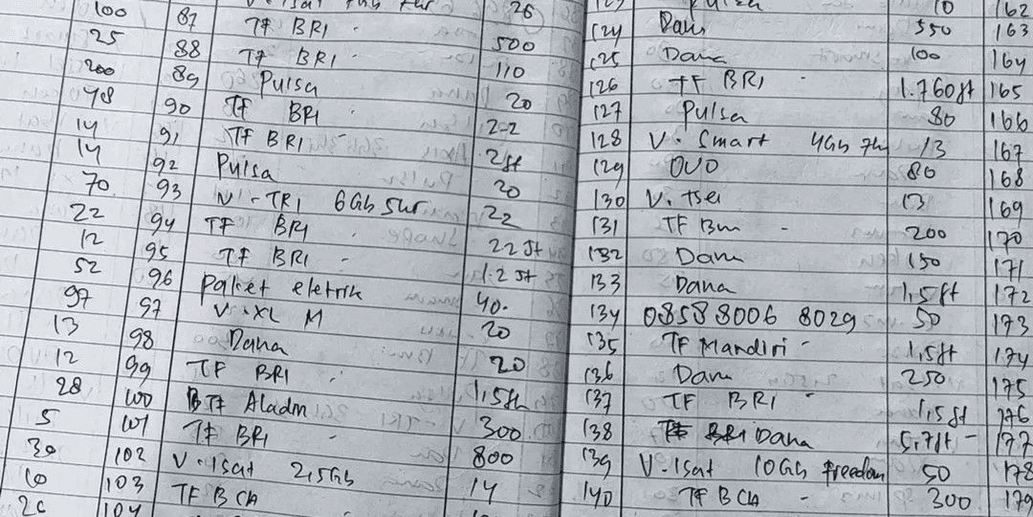 V.Isat 26
100 87 TF BRI 500
25 88 TF BRI 110
200 89 Pulsa 20
48 90 TF BRI 2-2
14 91 TF BRI - 2jt
14 92 Pulsa 20
70 93 V-TRI 6Gb 5hr 22
22 94 TF BRI 22 Jt
12 95 TF BRI 1.2 Jt
52 96 Paket eletrik 40.
97 97 V.XL M 20
13 98 Dana 20
12 99 TF BRI 1,5jt
28 100 TF Aladin 300
5 101 TF BRI 800
30 102 V.Isat 2,5Gb 14
10 103 TF BCA
104
123 Pulsa 10 162
124 Dana 550 163
125 Dana 100 164
126 TF BRI 1.760jt 165
127 Pulsa 80 166
128 V. Smart 4Gb 7h 13 167
129 OVO 80 168
130 V. Tsel 13 169
131 TF Bni - 200 170
132 Dana 150 171
133 Dana 1,5jt 172
134 08588006 8029 50 173
135 TF Mandiri - 1,5jt 174
136 Dana 250 175
137 TF BRI 1,5jt 176
138 Dana 5,7jt - 177
139 V.Isat 10Gb freedom 50 178
140 TF BCA - 300 179